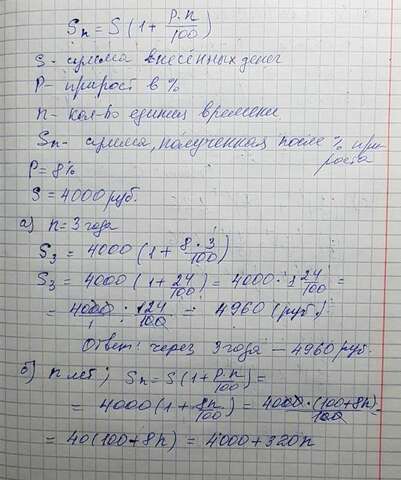 Sn = S (1 + p·n/100)
S - сумма внесённых денег
P - прирост в %
n - кол-во единиц времени
Sn - сумма, полученная после % при-
роста
P = 8%
S = 4000 руб.
а) n = 3 года
S3 = 4000 (1 + 8·3/100)
S3 = 4000 (1 + 24/100) = 4000 · 1 24/100 =
= 4000/1 · 124/100 = 4960 (руб.)
Ответ: через 3 года — 4960 руб.
б) n лет; Sn = S (1 + p·n/100) =
= 4000 (1 + 8n/100) = 4000·(100+8n)/100 =
= 40(100+8n) = 4000+320n